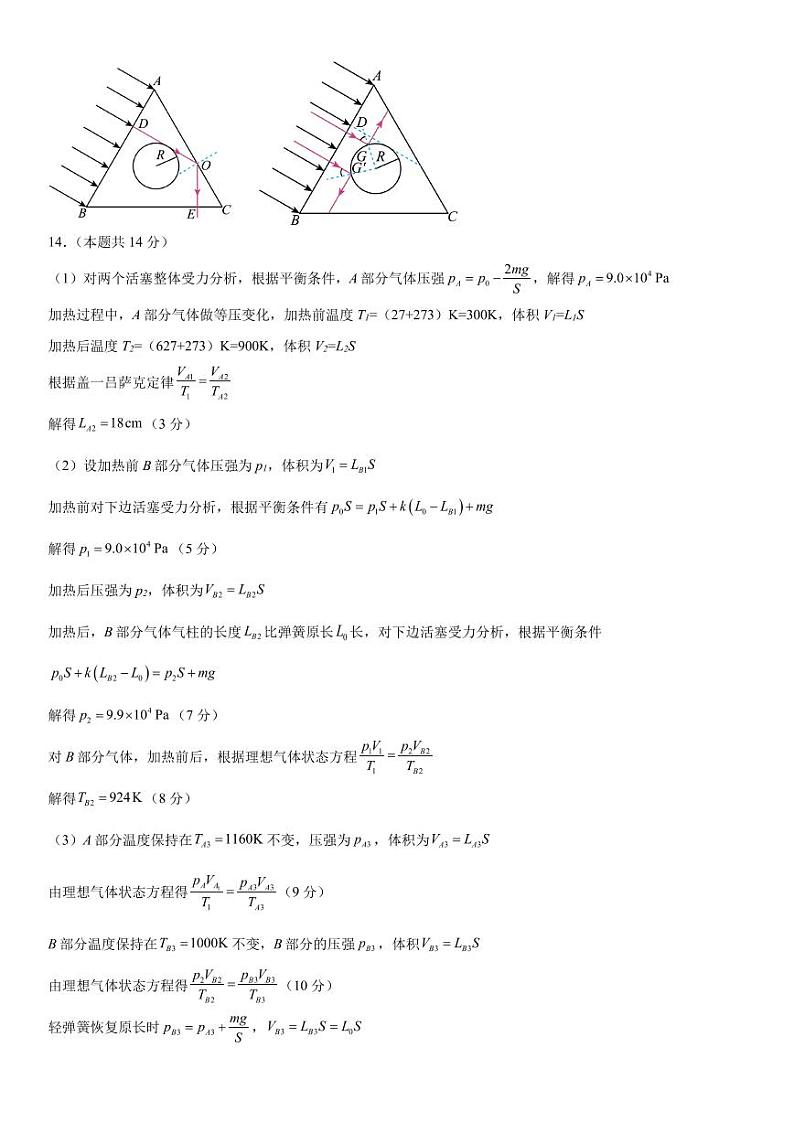 A
A
D
D
R
O
G
R
G′
B
E
C
B
C
14.（本题共 14 分）
（1）对两个活塞整体受力分析，根据平衡条件，A 部分气体压强 p_A = p_0 − 2mg/S ，解得 p_A = 9.0×10⁴ Pa
加热过程中，A 部分气体做等压变化，加热前温度 T₁=（27+273）K=300K，体积 V₁=L₁S
加热后温度 T₂=（627+273）K=900K，体积 V₂=L₂S
根据盖一吕萨克定律 V_{A1}/T_1 = V_{A2}/T_{A2}
解得 L_{A2} = 18cm（3 分）
（2）设加热前 B 部分气体压强为 p₁，体积为 V_1 = L_{B1}S
加热前对下边活塞受力分析，根据平衡条件有 p_0S = p_1S + k(L_0 − L_{B1}) + mg
解得 p_1 = 9.0×10⁴ Pa（5 分）
加热后压强为 p₂，体积为 V_{B2} = L_{B2}S
加热后，B 部分气体气柱的长度 L_{B2} 比弹簧原长 L_0 长，对下边活塞受力分析，根据平衡条件
p_0S + k(L_{B2} − L_0) = p_2S + mg
解得 p_2 = 9.9×10⁴ Pa（7 分）
对 B 部分气体，加热前后，根据理想气体状态方程 p_1V_1/T_1 = p_2V_{B2}/T_{B2}
解得 T_{B2} = 924 K（8 分）
（3）A 部分温度保持在 T_{A3} = 1160K 不变，压强为 p_{A3}，体积为 V_{A3} = L_{A3}S
由理想气体状态方程得 p_AV_{A1}/T_1 = p_{A3}V_{A3}/T_{A3}（9 分）
B 部分温度保持在 T_{B3} = 1000K 不变，B 部分的压强 p_{B3}，体积 V_{B3} = L_{B3}S
由理想气体状态方程得 p_2V_{B2}/T_{B2} = p_{B3}V_{B3}/T_{B3}（10 分）
轻弹簧恢复原长时 p_{B3} = p_{A3} + mg/S ，V_{B3} = L_{B3}S = L_0S